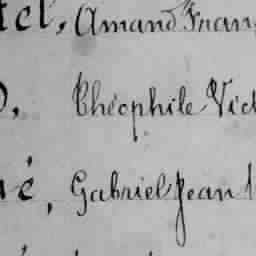 tel, Amand Fran
, Théophile Vict
é, Gabriel Jean